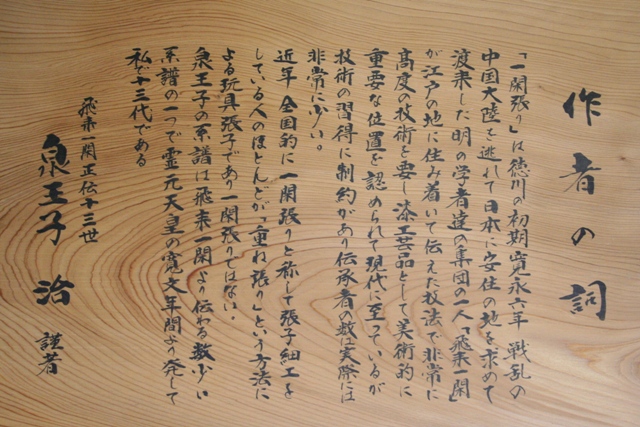 作者の詞
「一閑張り」は徳川の初期寛永六年 戦乱の
中国大陸を逃れて日本に安住の地を求めて
渡来した明の学者達の集団の一人「飛来一閑」
が江戸の地に住み着いて伝えた技法で非常に
高度の技術を要し漆工芸品として美術的に
重要な位置を認められて現代に至っているが
技術の習得に制約があり伝承者の数は実際には
非常に少い。
近年 全国的に一閑張りと称して張子細工を
している人のほとんどが「重ね張り」という方法に
よる玩具張子であり一閑張りではない。
泉王子の系譜は飛来一閑より伝わる数少い
系譜の一つで霊元天皇の寛文年間より発して
私で十三代である
飛来一閑正伝十三世
泉王子 治 謹著